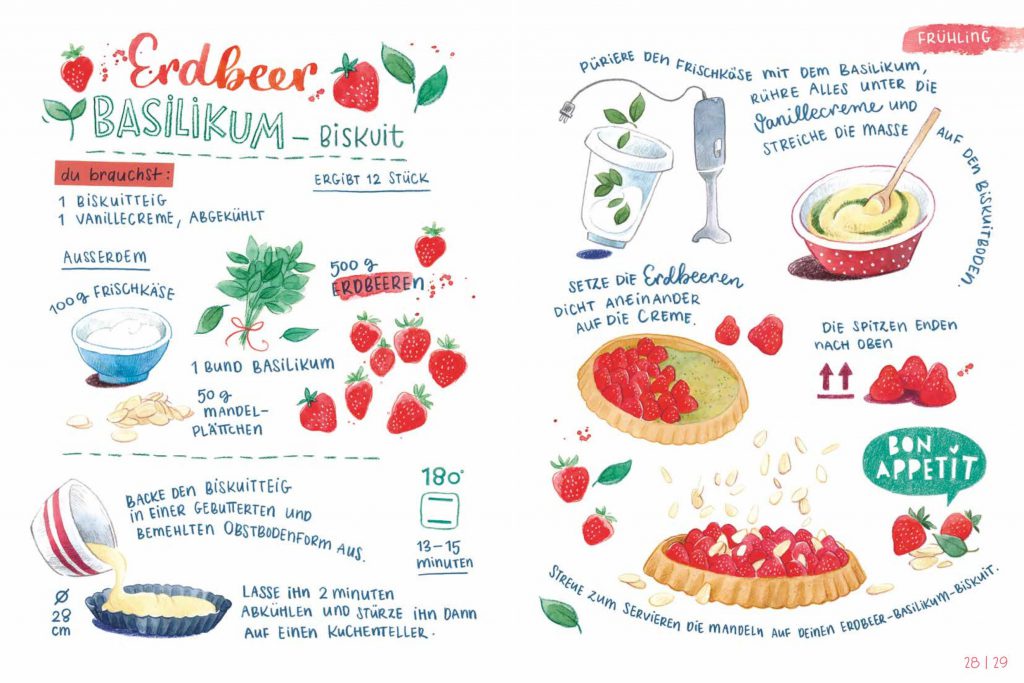 Erdbeer
BASILIKUM – BISKUIT
du brauchst:
ERGIBT 12 STÜCK
1 BISKUITTEIG
1 VANILLECREME, ABGEKÜHLT
AUSSERDEM
100 g FRISCHKÄSE
500 g
ERDBEEREN
1 BUND BASILIKUM
50 g
MANDEL-
PLÄTTCHEN
BACKE DEN BISKUITTEIG
IN EINER GEBUTTERTEN UND
BEMEHLTEN OBSTBODENFORM AUS.
180°
13–15
MINUTEN
Ø
28
cm
LASSE IHN 2 MINUTEN
ABKÜHLEN UND STÜRZE IHN DANN
AUF EINEN KUCHENTELLER.
FRÜHLING
PÜRIERE DEN FRISCHKÄSE MIT DEM BASILIKUM,
RÜHRE ALLES UNTER DIE
Vanillecreme UND
STREICHE DIE MASSE
AUF DEN BISKUITBODEN.
SETZE DIE Erdbeeren
DICHT ANEINANDER
AUF DIE CREME.
DIE SPITZEN ENDEN
NACH OBEN
BON
APPETIT
STREUE ZUM SERVIEREN DIE MANDELN AUF DEINEN ERDBEER-BASILIKUM-BISKUIT.
28 | 29